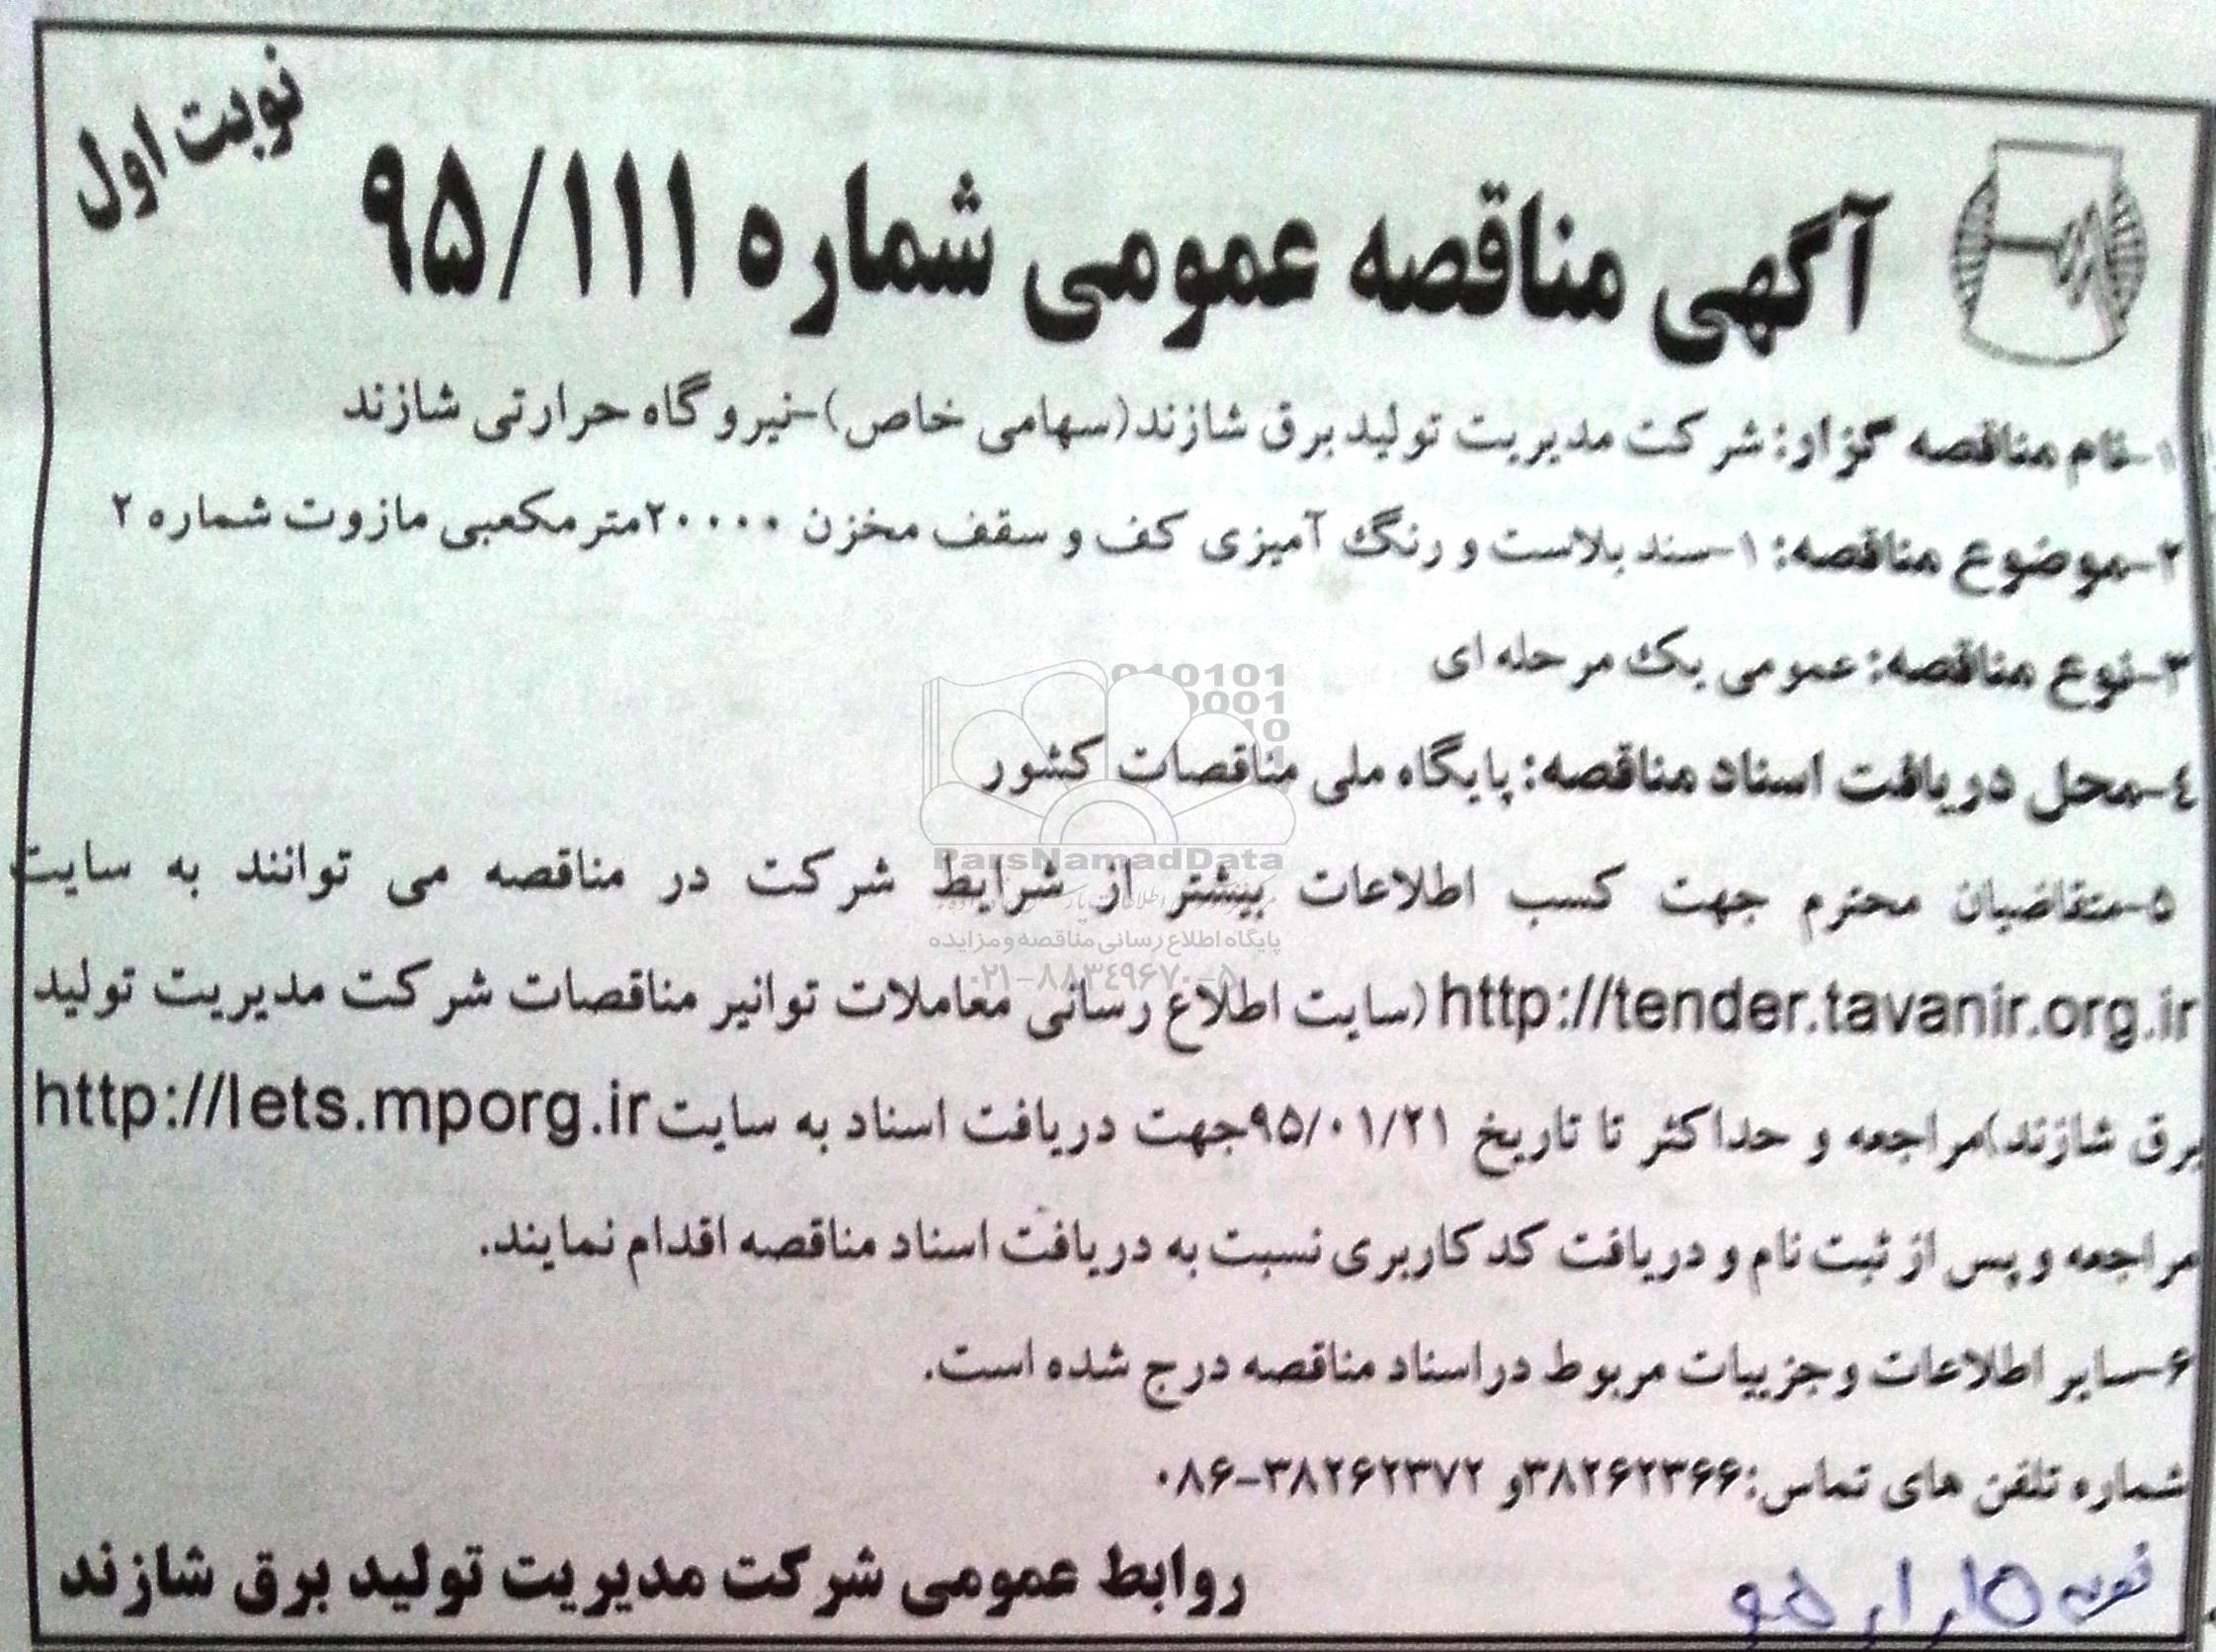 نوبت اول
آگهی مناقصه عمومی شماره ۹۵/۱۱۱
۱-نام مناقصه گزار: شرکت مدیریت تولید برق شازند(سهامی خاص)-نیروگاه حرارتی شازند
۲-موضوع مناقصه: ۱-سندبلاست و رنگ آمیزی کف و سقف مخزن ۲۰۰۰۰مترمکعبی مازوت شماره ۲
۳-نوع مناقصه: عمومی یک مرحله ای
۴-محل دریافت اسناد مناقصه: پایگاه ملی مناقصات کشور
۵-متقاضیان محترم جهت کسب اطلاعات بیشتر از شرایط شرکت در مناقصه می توانند به سایت
http://tender.tavanir.org.ir (سایت اطلاع رسانی معاملات توانیر مناقصات شرکت مدیریت تولید
برق شازند)مراجعه و حداکثر تا تاریخ ۹۵/۰۱/۲۱جهت دریافت اسناد به سایت http://lets.mporg.ir
مراجعه و پس از ثبت نام و دریافت کد کاربری نسبت به دریافت اسناد مناقصه اقدام نمایند.
۶-سایر اطلاعات و جزییات مربوط در اسناد مناقصه درج شده است.
شماره تلفن های تماس:۳۸۲۶۲۳۶۶و ۳۸۲۶۲۳۷۲-۰۸۶
روابط عمومی شرکت مدیریت تولید برق شازند
۹۵,۱,۱۵
010101
0001
10
1
ParsNamadData
پایگاه اطلاع رسانی مناقصه و مزایده
۰۲۱-۸۸۳۴۹۶۷۰-۵